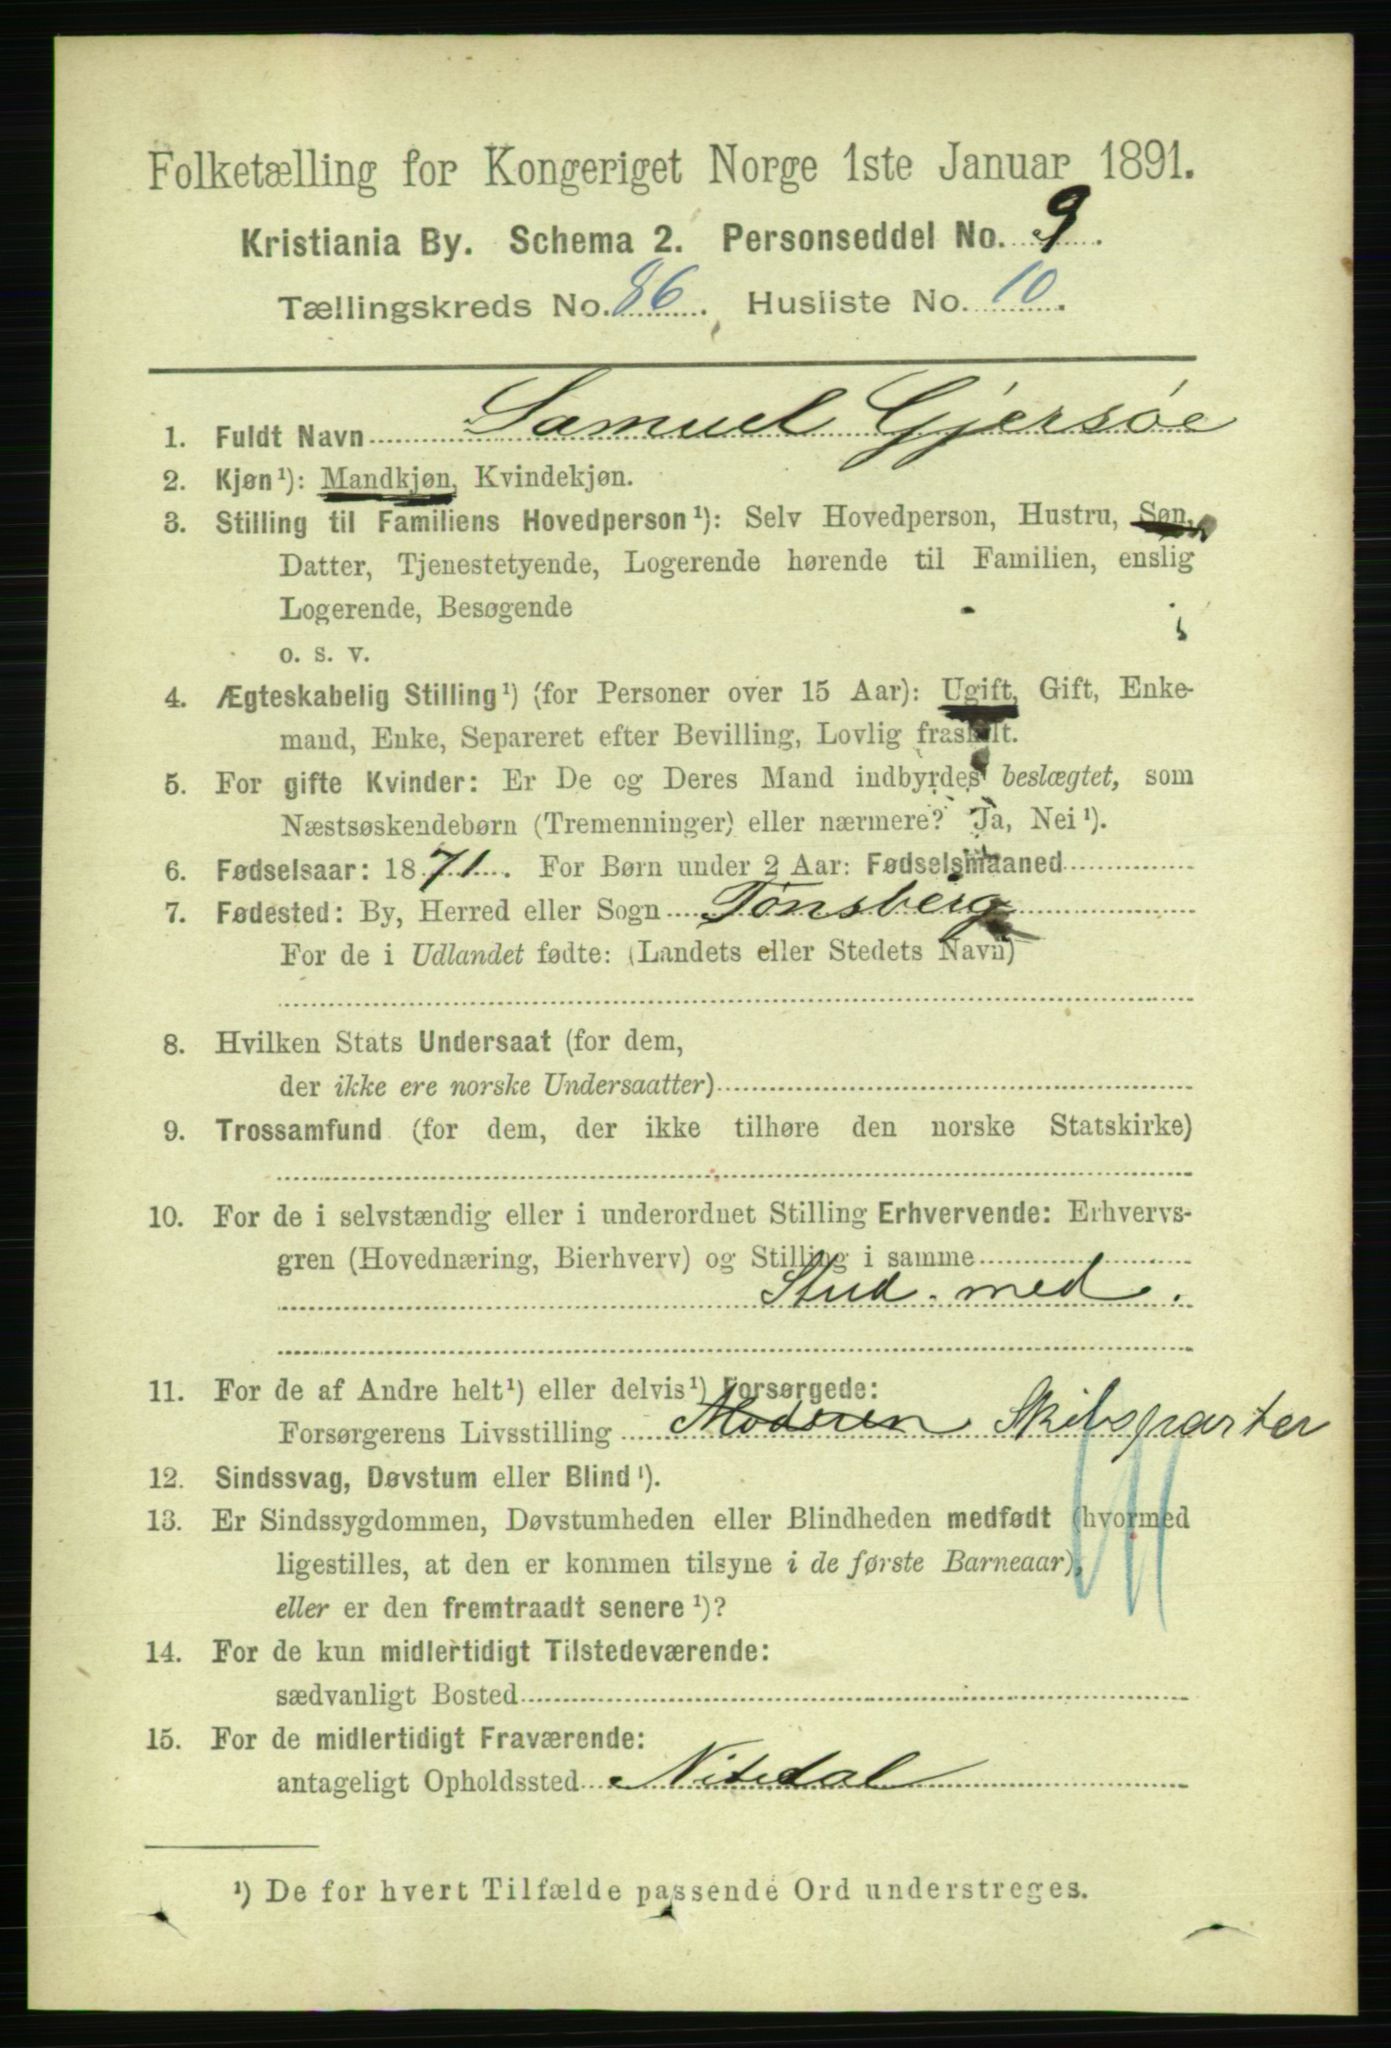 Folketælling for Kongeriget Norge 1ste Januar 1891.
Kristiania By. Schema 2. Personseddel No. 9.
Tællingskreds No. 86. Husliste No. 10.
1. Fuldt Navn Samuel Gjersøe
2. Kjøn¹): Mandkjøn, Kvindekjøn.
3. Stilling til Familiens Hovedperson¹): Selv Hovedperson, Hustru, Søn,
Datter, Tjenestetyende, Logerende hørende til Familien, enslig
Logerende, Besøgende
o. s. v.
4. Ægteskabelig Stilling¹) (for Personer over 15 Aar): Ugift, Gift, Enke-
mand, Enke, Separeret efter Bevilling, Lovlig fraskilt.
5. For gifte Kvinder: Er De og Deres Mand indbyrdes beslægtet, som
Næstsøskendebørn (Tremenninger) eller nærmere? Ja, Nei¹).
6. Fødselsaar: 1871. For Børn under 2 Aar: Fødselsmaaned
7. Fødested: By, Herred eller Sogn Tønsberg
For de i Udlandet fødte: (Landets eller Stedets Navn)
8. Hvilken Stats Undersaat (for dem,
der ikke ere norske Undersaatter)
9. Trossamfund (for dem, der ikke tilhøre den norske Statskirke)
10. For de i selvstændig eller i underordnet Stilling Erhvervende: Erhvervs-
gren (Hovednæring, Bierhverv) og Stilling i samme
Stud. med.
11. For de af Andre helt¹) eller delvis¹) Forsørgede:
Forsørgerens Livsstilling Moderen Skibsparter
12. Sindssvag, Døvstum eller Blind¹).
13. Er Sindssygdommen, Døvstumheden eller Blindheden medfødt (hvormed
ligestilles, at den er kommen tilsyne i de første Barneaar),
eller er den fremtraadt senere¹)?
14. For de kun midlertidigt Tilstedeværende:
sædvanligt Bosted
15. For de midlertidigt Fraværende:
antageligt Opholdssted Nitedal
¹) De for hvert Tilfælde passende Ord understreges.